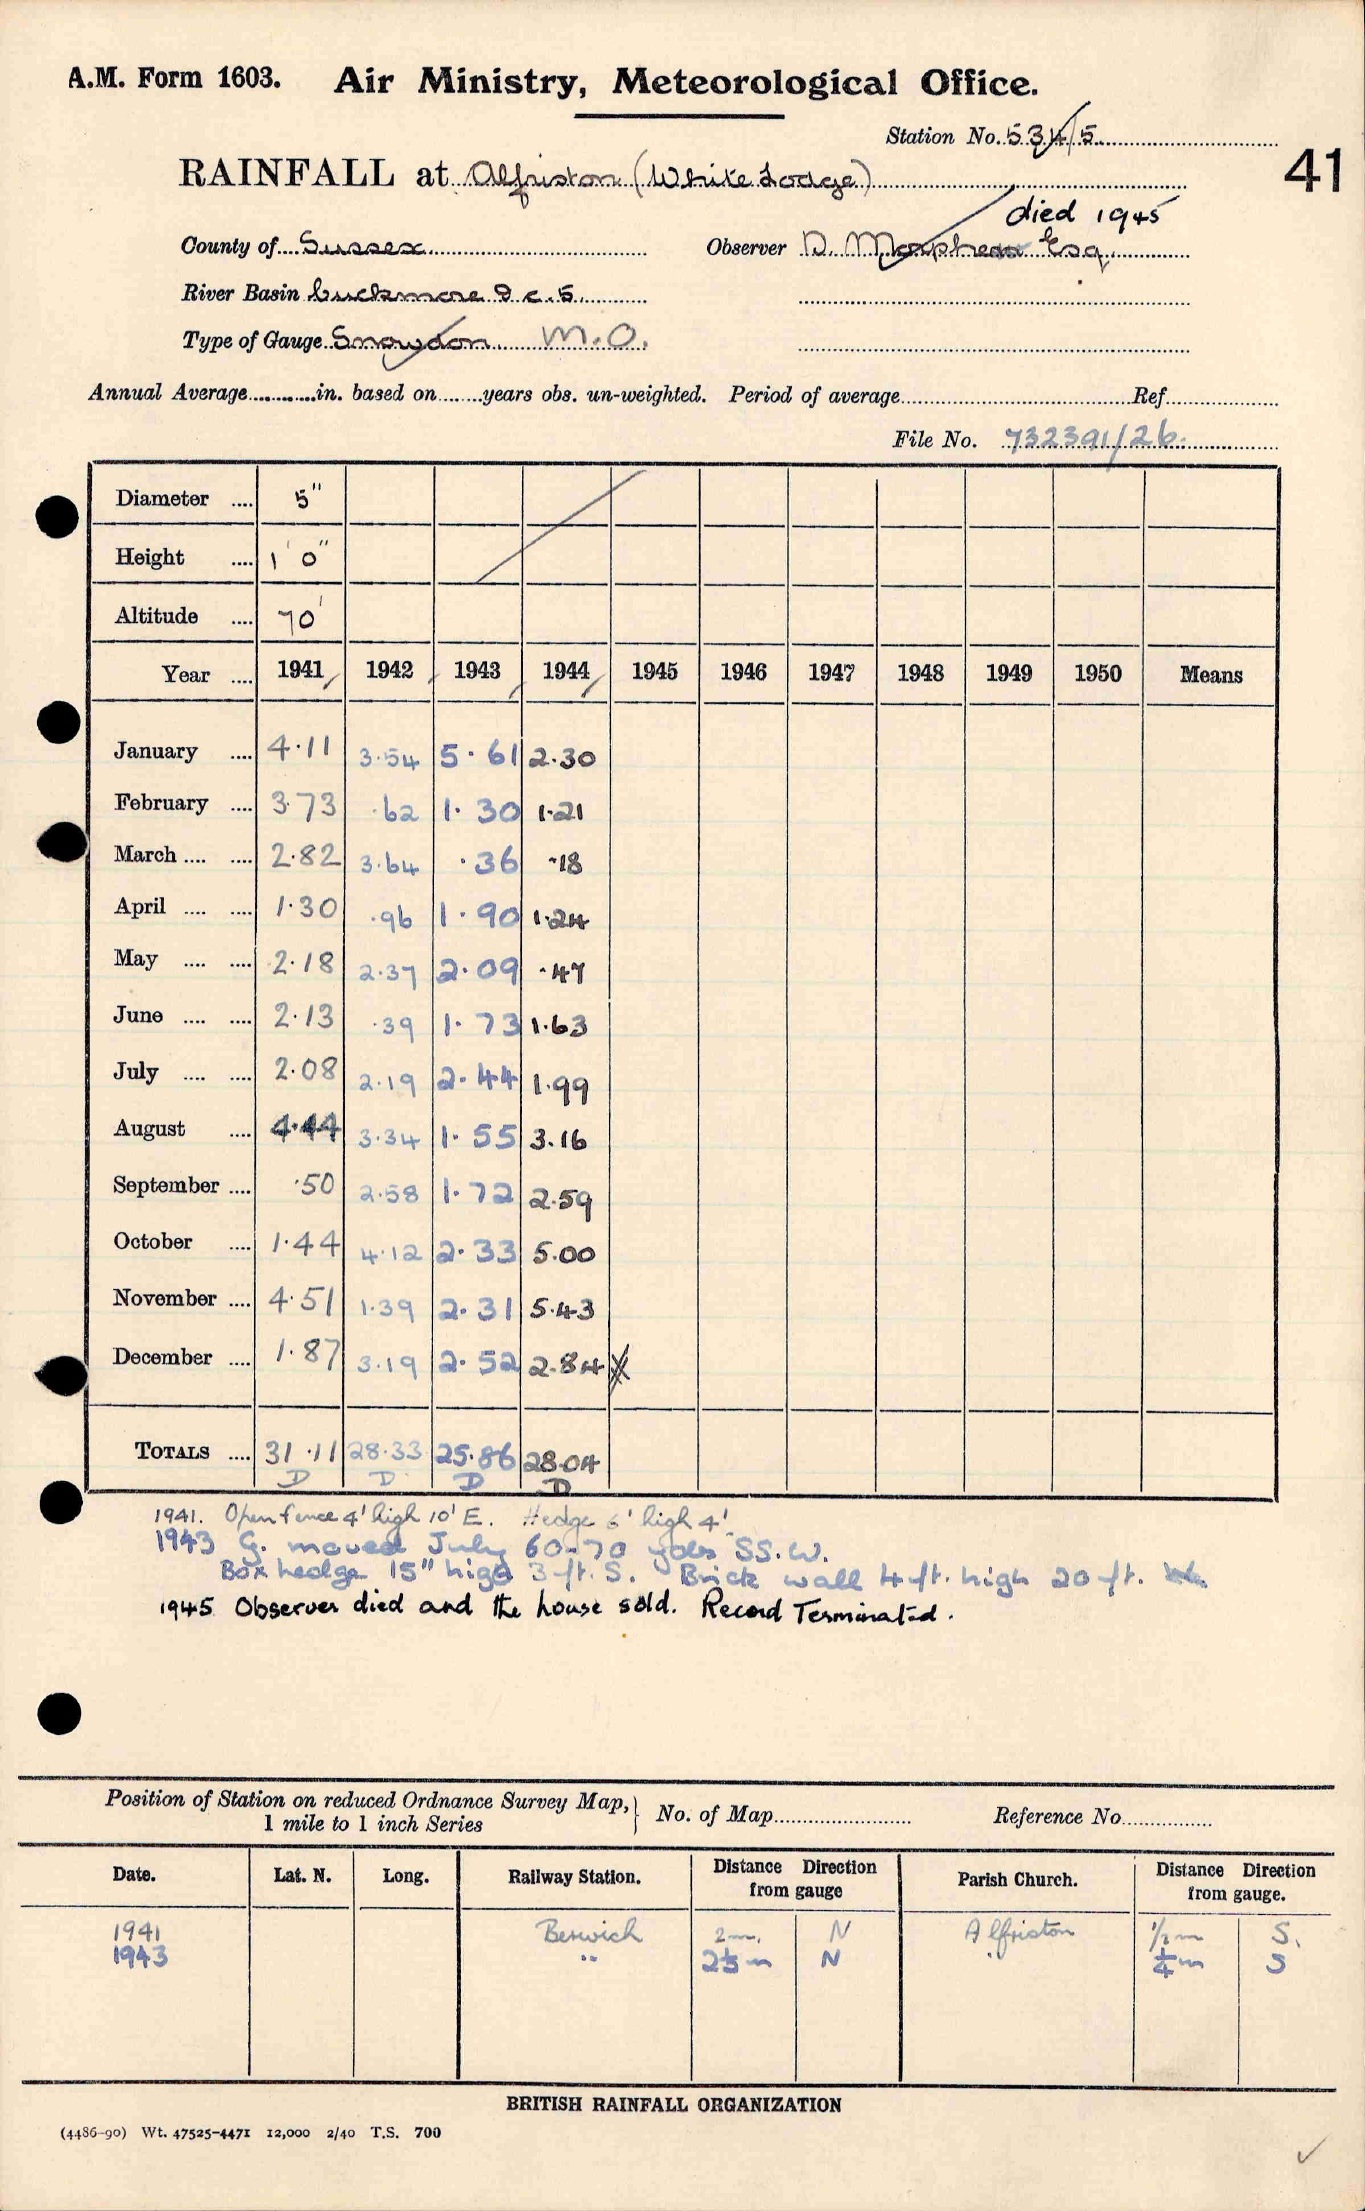 A.M. Form 1603. Air Ministry, Meteorological Office.
Station No. 534/5
41
RAINFALL at Alfriston (White Lodge)
died 1945
County of Sussex Observer D. Esq.
River Basin Cuckmere
Type of Gauge Snowdon M.O.
Annual Average............in. based on........years obs. un-weighted. Period of average........Ref........
File No. 732391/26.
Diameter .... 5"
Height .... 1' 0"
Altitude .... 70'
Year .... 1941 1942 1943 1944 1945 1946 1947 1948 1949 1950 Means
January .... 4.11 3.54 5.61 2.30
February .... 3.73 .62 1.30 1.21
March .... .... 2.82 3.64 .36 .18
April .... .... 1.30 .96 1.90 1.24
May .... .... 2.18 2.37 2.09 .47
June .... .... 2.13 .39 1.73 1.63
July .... .... 2.08 2.19 2.44 1.99
August .... 4.44 3.34 1.55 3.16
September .... .50 2.58 1.72 2.59
October .... 1.44 4.12 2.33 5.00
November .... 4.51 1.39 2.31 5.43
December .... 1.87 3.19 2.52 2.84
TOTALS .... 31.11 28.33 25.86 28.04
D D D D
1941. Open fence 4' high 10' E. Hedge 6' high 4'
1943 G. moved July 60-70 yds SS.W.
Box hedge 15" high 3 ft. S. Brick wall 4 ft. high 20 ft.
1945 Observer died and the house sold. Record Terminated.
Position of Station on reduced Ordnance Survey Map, 1 mile to 1 inch Series } No. of Map........ Reference No........
Date. Lat. N. Long. Railway Station. Distance Direction from gauge Parish Church. Distance Direction from gauge.
1941 Berwick 2 m. N Alfriston 1/2 m S.
1943 " 2 1/3 m N " 1/4 m S
BRITISH RAINFALL ORGANIZATION
(4486-90) Wt. 47525-4471 12,000 2/40 T.S. 700